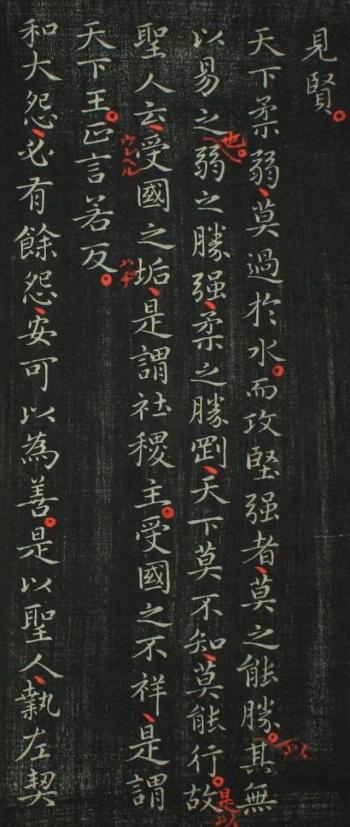 見賢。
天下柔弱、莫過於水。而攻堅强者、莫之能勝。其無
以易之。弱之勝强、柔之勝剛、天下莫不知、莫能行。故
聖人云、受國之垢、是謂社稷主。受國之不祥、是謂
天下王。正言若反。
和大怨、必有餘怨、安可以為善。是以聖人、執左契
也
以
是以
ハヂ